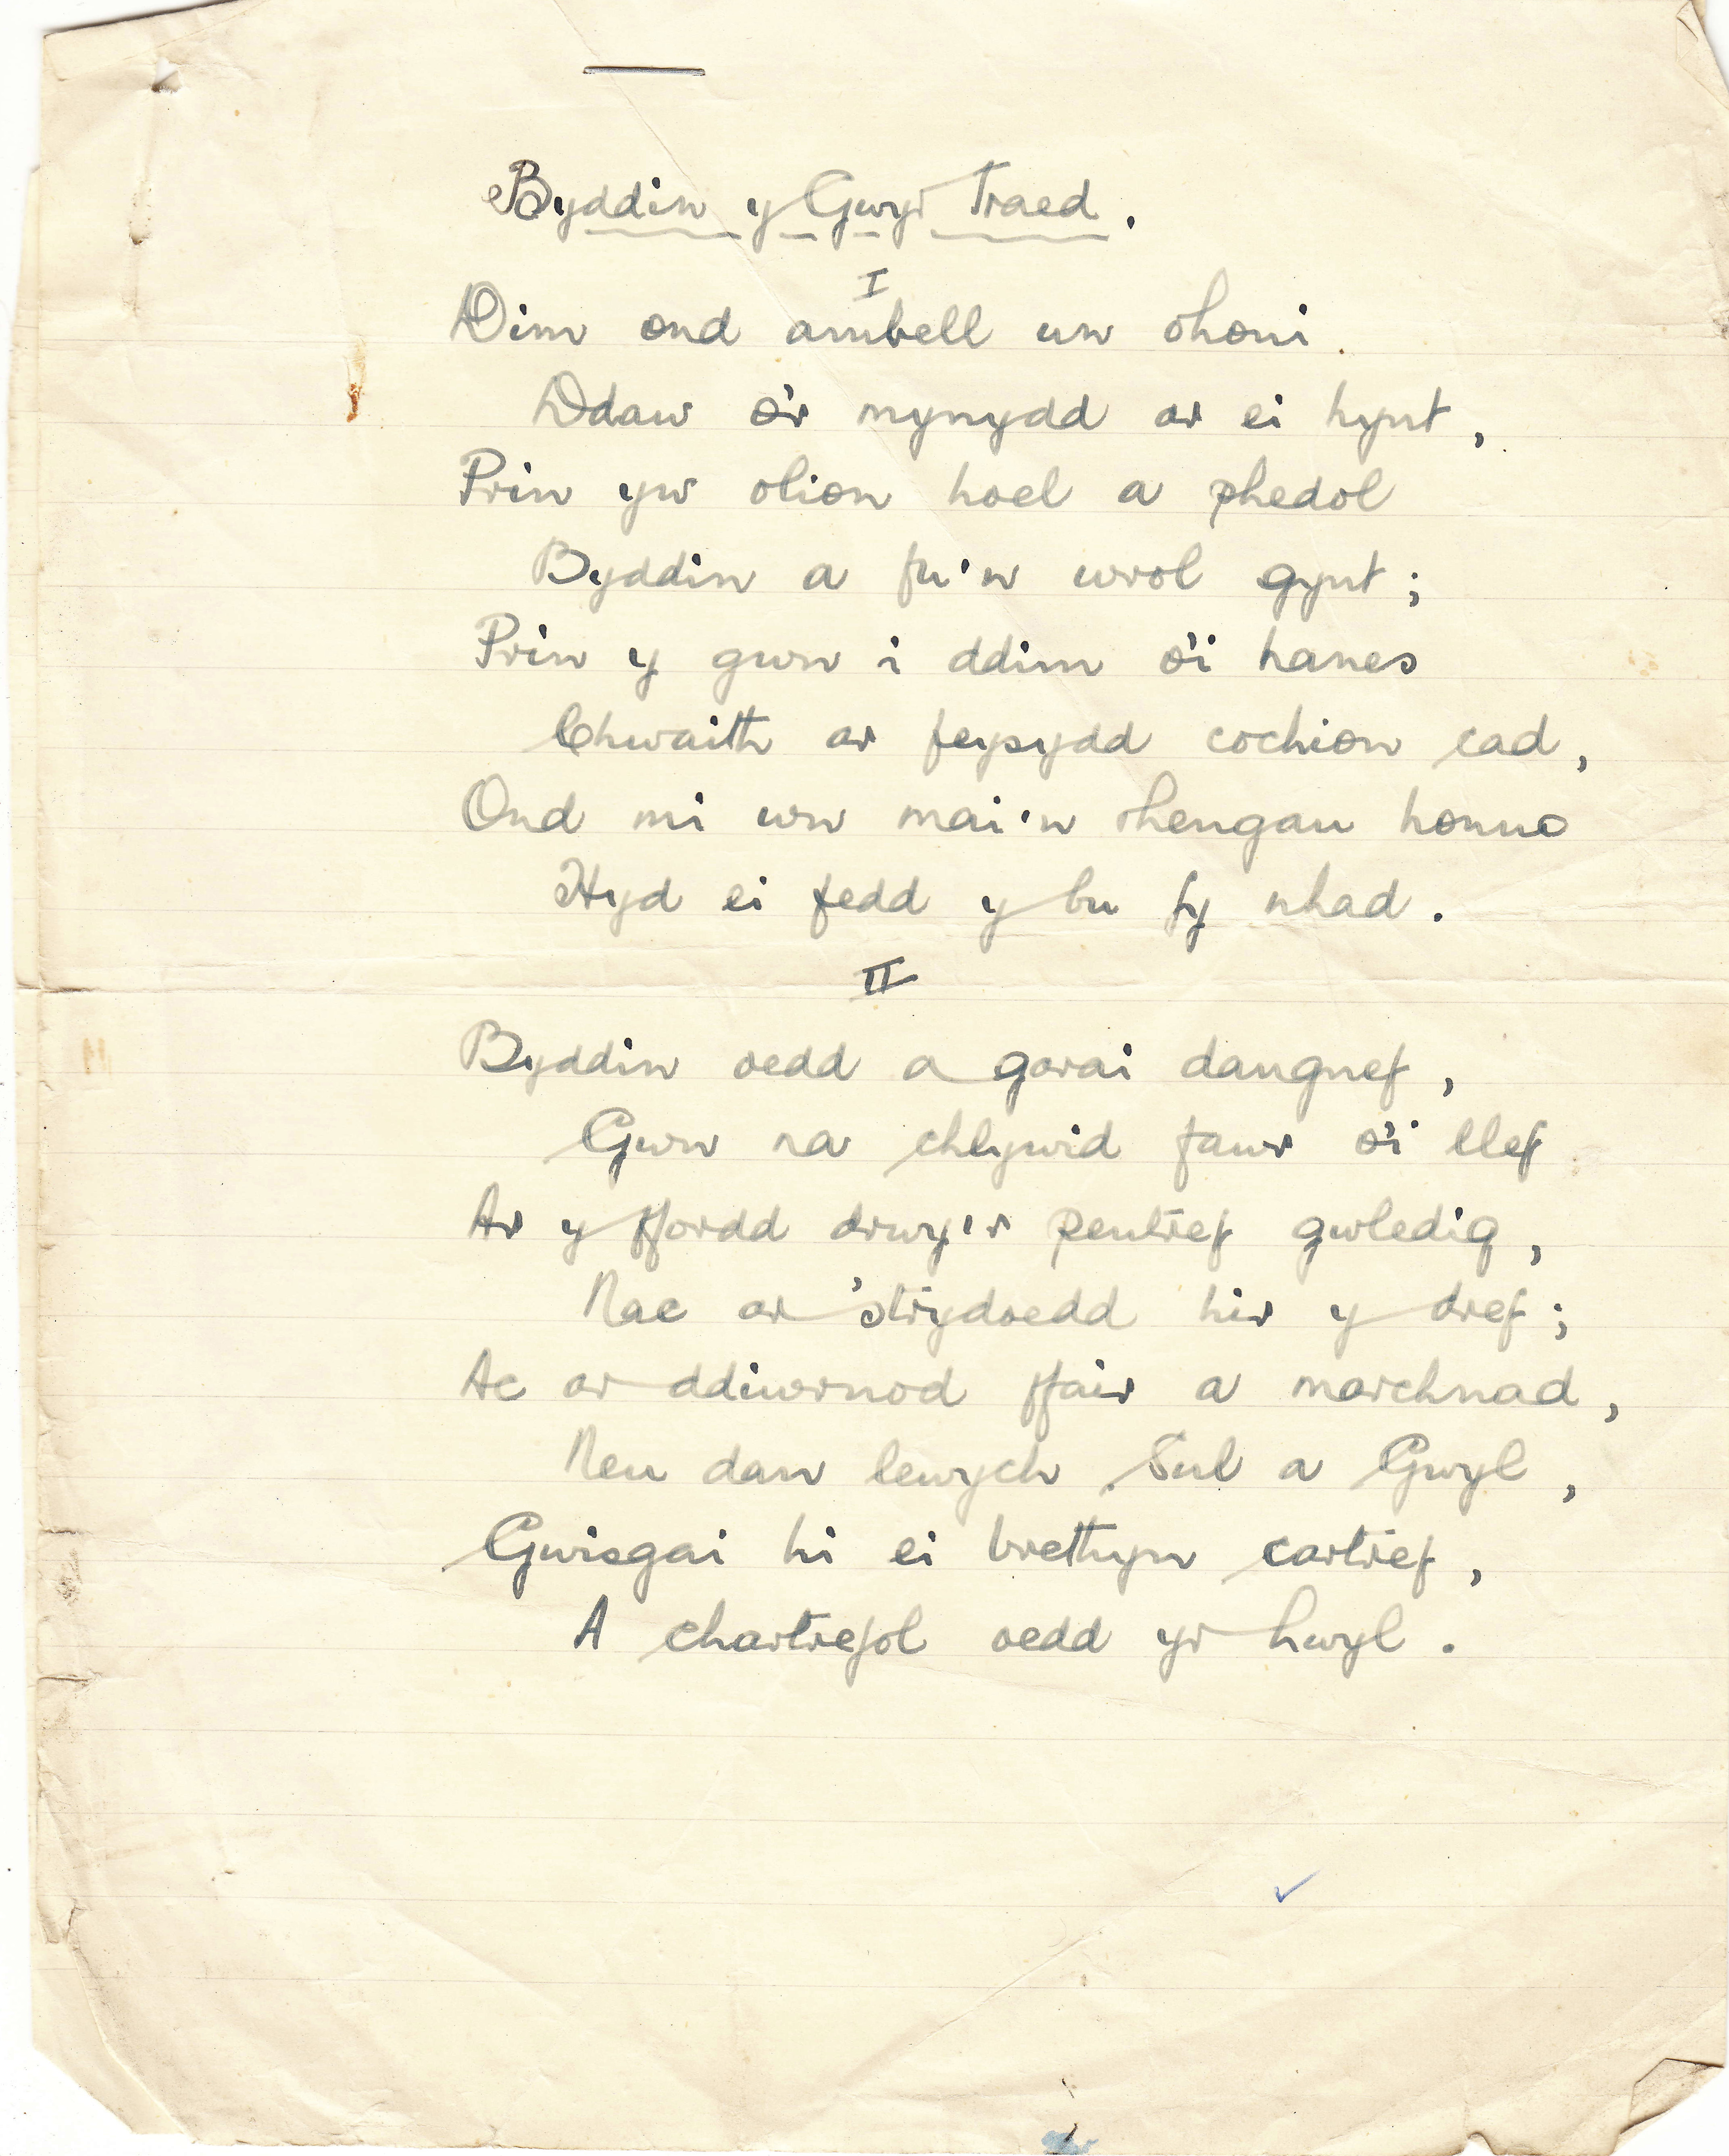 Byddin y Gwyr Traed.
I
Dim ond ambell un ohoni
Ddaw o'r mynydd ar ei hynt,
Prin yw olion hoel a phedol
Byddin a fu'n wrol gynt;
Prin y gwn i ddim o'i hanes
Chwaith ar feysydd cochion cad,
Ond mi wn mai'n rhengau honno
Hyd ei fedd y bu fy nhad.
II
Byddin oedd a garai dangnef,
Gwn na chlywid fawr o'i llef
Ar y ffordd drwy'r pentref gwledig,
Nac ar 'strydoedd hir y dref;
Ac ar ddiwrnod ffair a marchnad,
Neu dan lewych Sul a Gwyl,
Gwisgai hi ei brethyn cartref,
A chartrefol oedd yr hwyl.